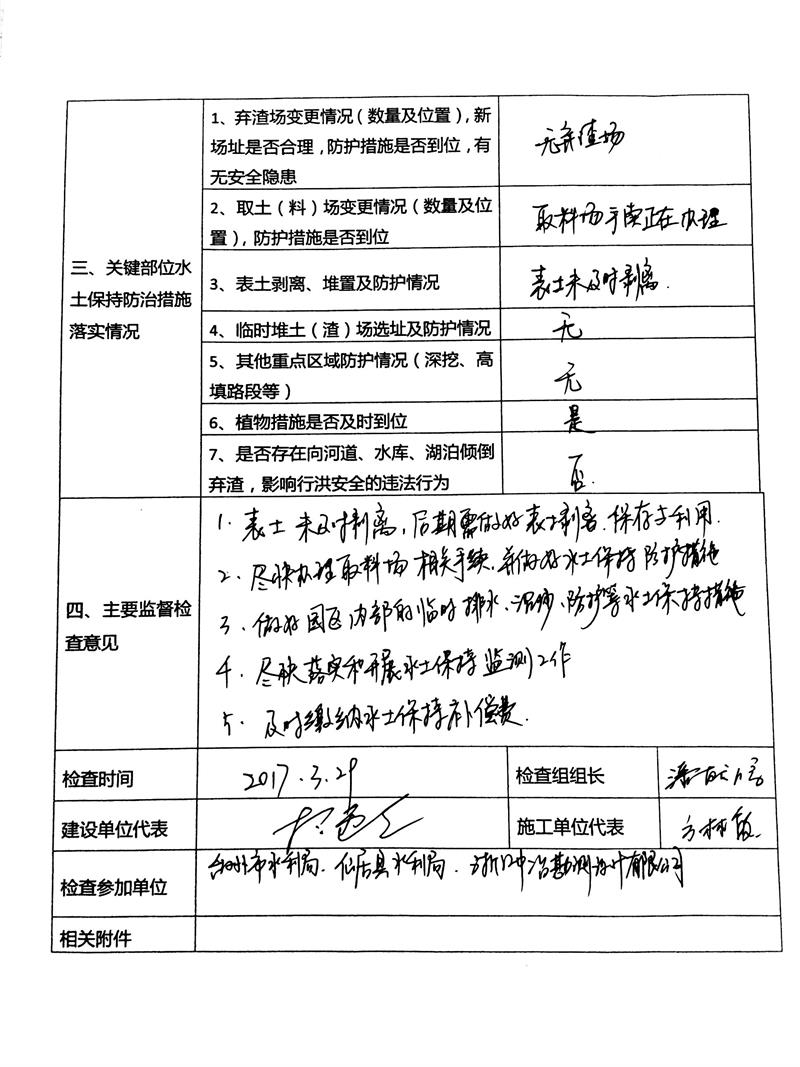 三、关键部位水
土保持防治措施
落实情况
1、弃渣场变更情况（数量及位置），新
场址是否合理，防护措施是否到位，有
无安全隐患
无弃渣场
2、取土（料）场变更情况（数量及位
置），防护措施是否到位
取料场手续正在办理
3、表土剥离、堆置及防护情况
表土未及时剥离.
4、临时堆土（渣）场选址及防护情况
无
5、其他重点区域防护情况（深挖、高
填路段等）
无
6、植物措施是否及时到位
是
7、是否存在向河道、水库、湖泊倾倒
弃渣，影响行洪安全的违法行为
否.
四、主要监督检
查意见
1. 表土未及时剥离，后期需做好表土剥离、保存与利用.
2. 尽快办理取料场相关手续，并做好水土保持防护措施
3. 做好园区内部的临时排水、沉沙、防护等水土保持措施
4. 尽快落实和开展水土保持监测工作
5. 及时缴纳水土保持补偿费.
检查时间
2017.3.29
检查组组长
建设单位代表
施工单位代表
检查参加单位
台州市水利局. 仙居县水利局. 浙江中冶勘测设计有限公司
相关附件